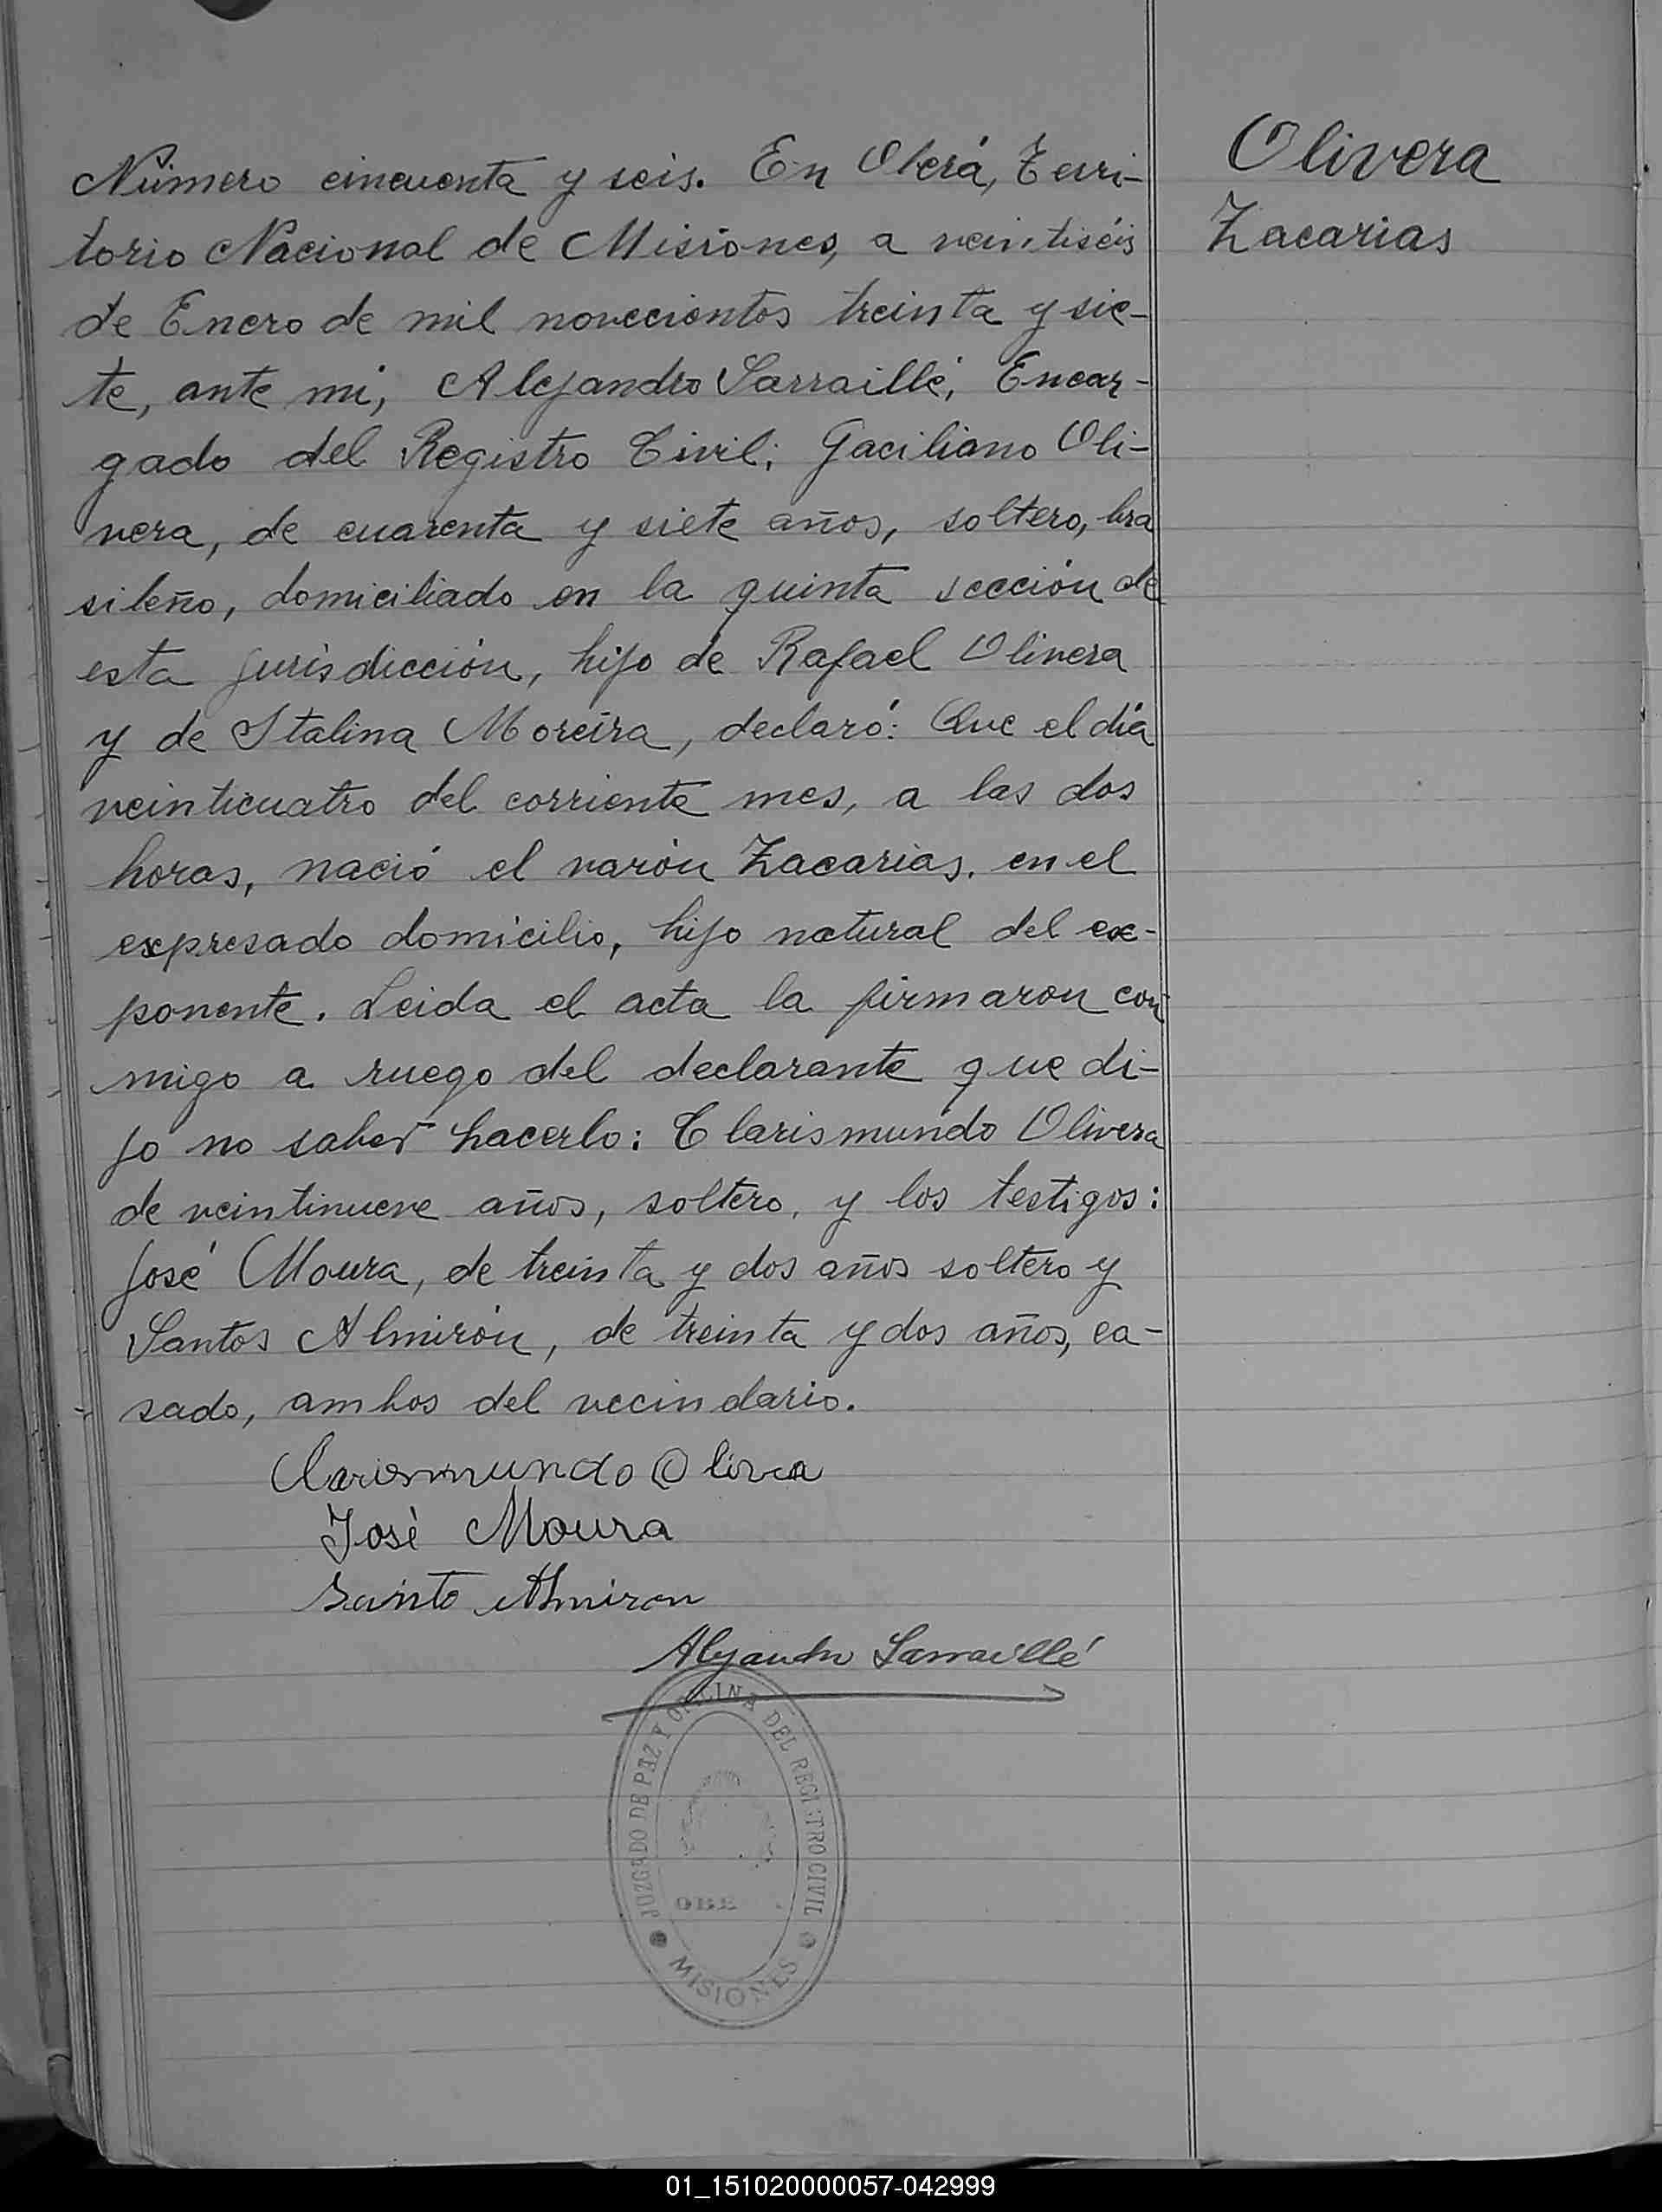 Número cincuenta y seis. En Oberá, Terri-
torio Nacional de Misiones, a veintiséis
de Enero de mil novecientos treinta y sie-
te, ante mi, Alejandro Sarraillé, Encar-
gado del Registro Civil; Gaciliano Oli-
vera, de cuarenta y siete años, soltero, bra
sileño, domiciliado en la quinta sección de
esta jurisdicción, hijo de Rafael Olivera
y de Italina Moreira, declaró: Que el día
veinticuatro del corriente mes, a las dos
horas, nació el varón Zacarias, en el
expresado domicilio, hijo natural del ex-
ponente. Leida el acta la firmaron con
migo a ruego del declarante que di-
jo no saber hacerlo: Clarismundo Olivera
de veintinueve años, soltero, y los testigos:
José Moura, de treinta y dos años soltero y
Santos Almirón, de treinta y dos años, ca-
sado, ambos del vecindario.
Olivera
Zacarias
José Moura
Santo Almiron
Alejandro Sarraillé
JUZGADO DE PAZ Y OFICINA DEL REGISTRO CIVIL
MISIONES
01_151020000057-042999